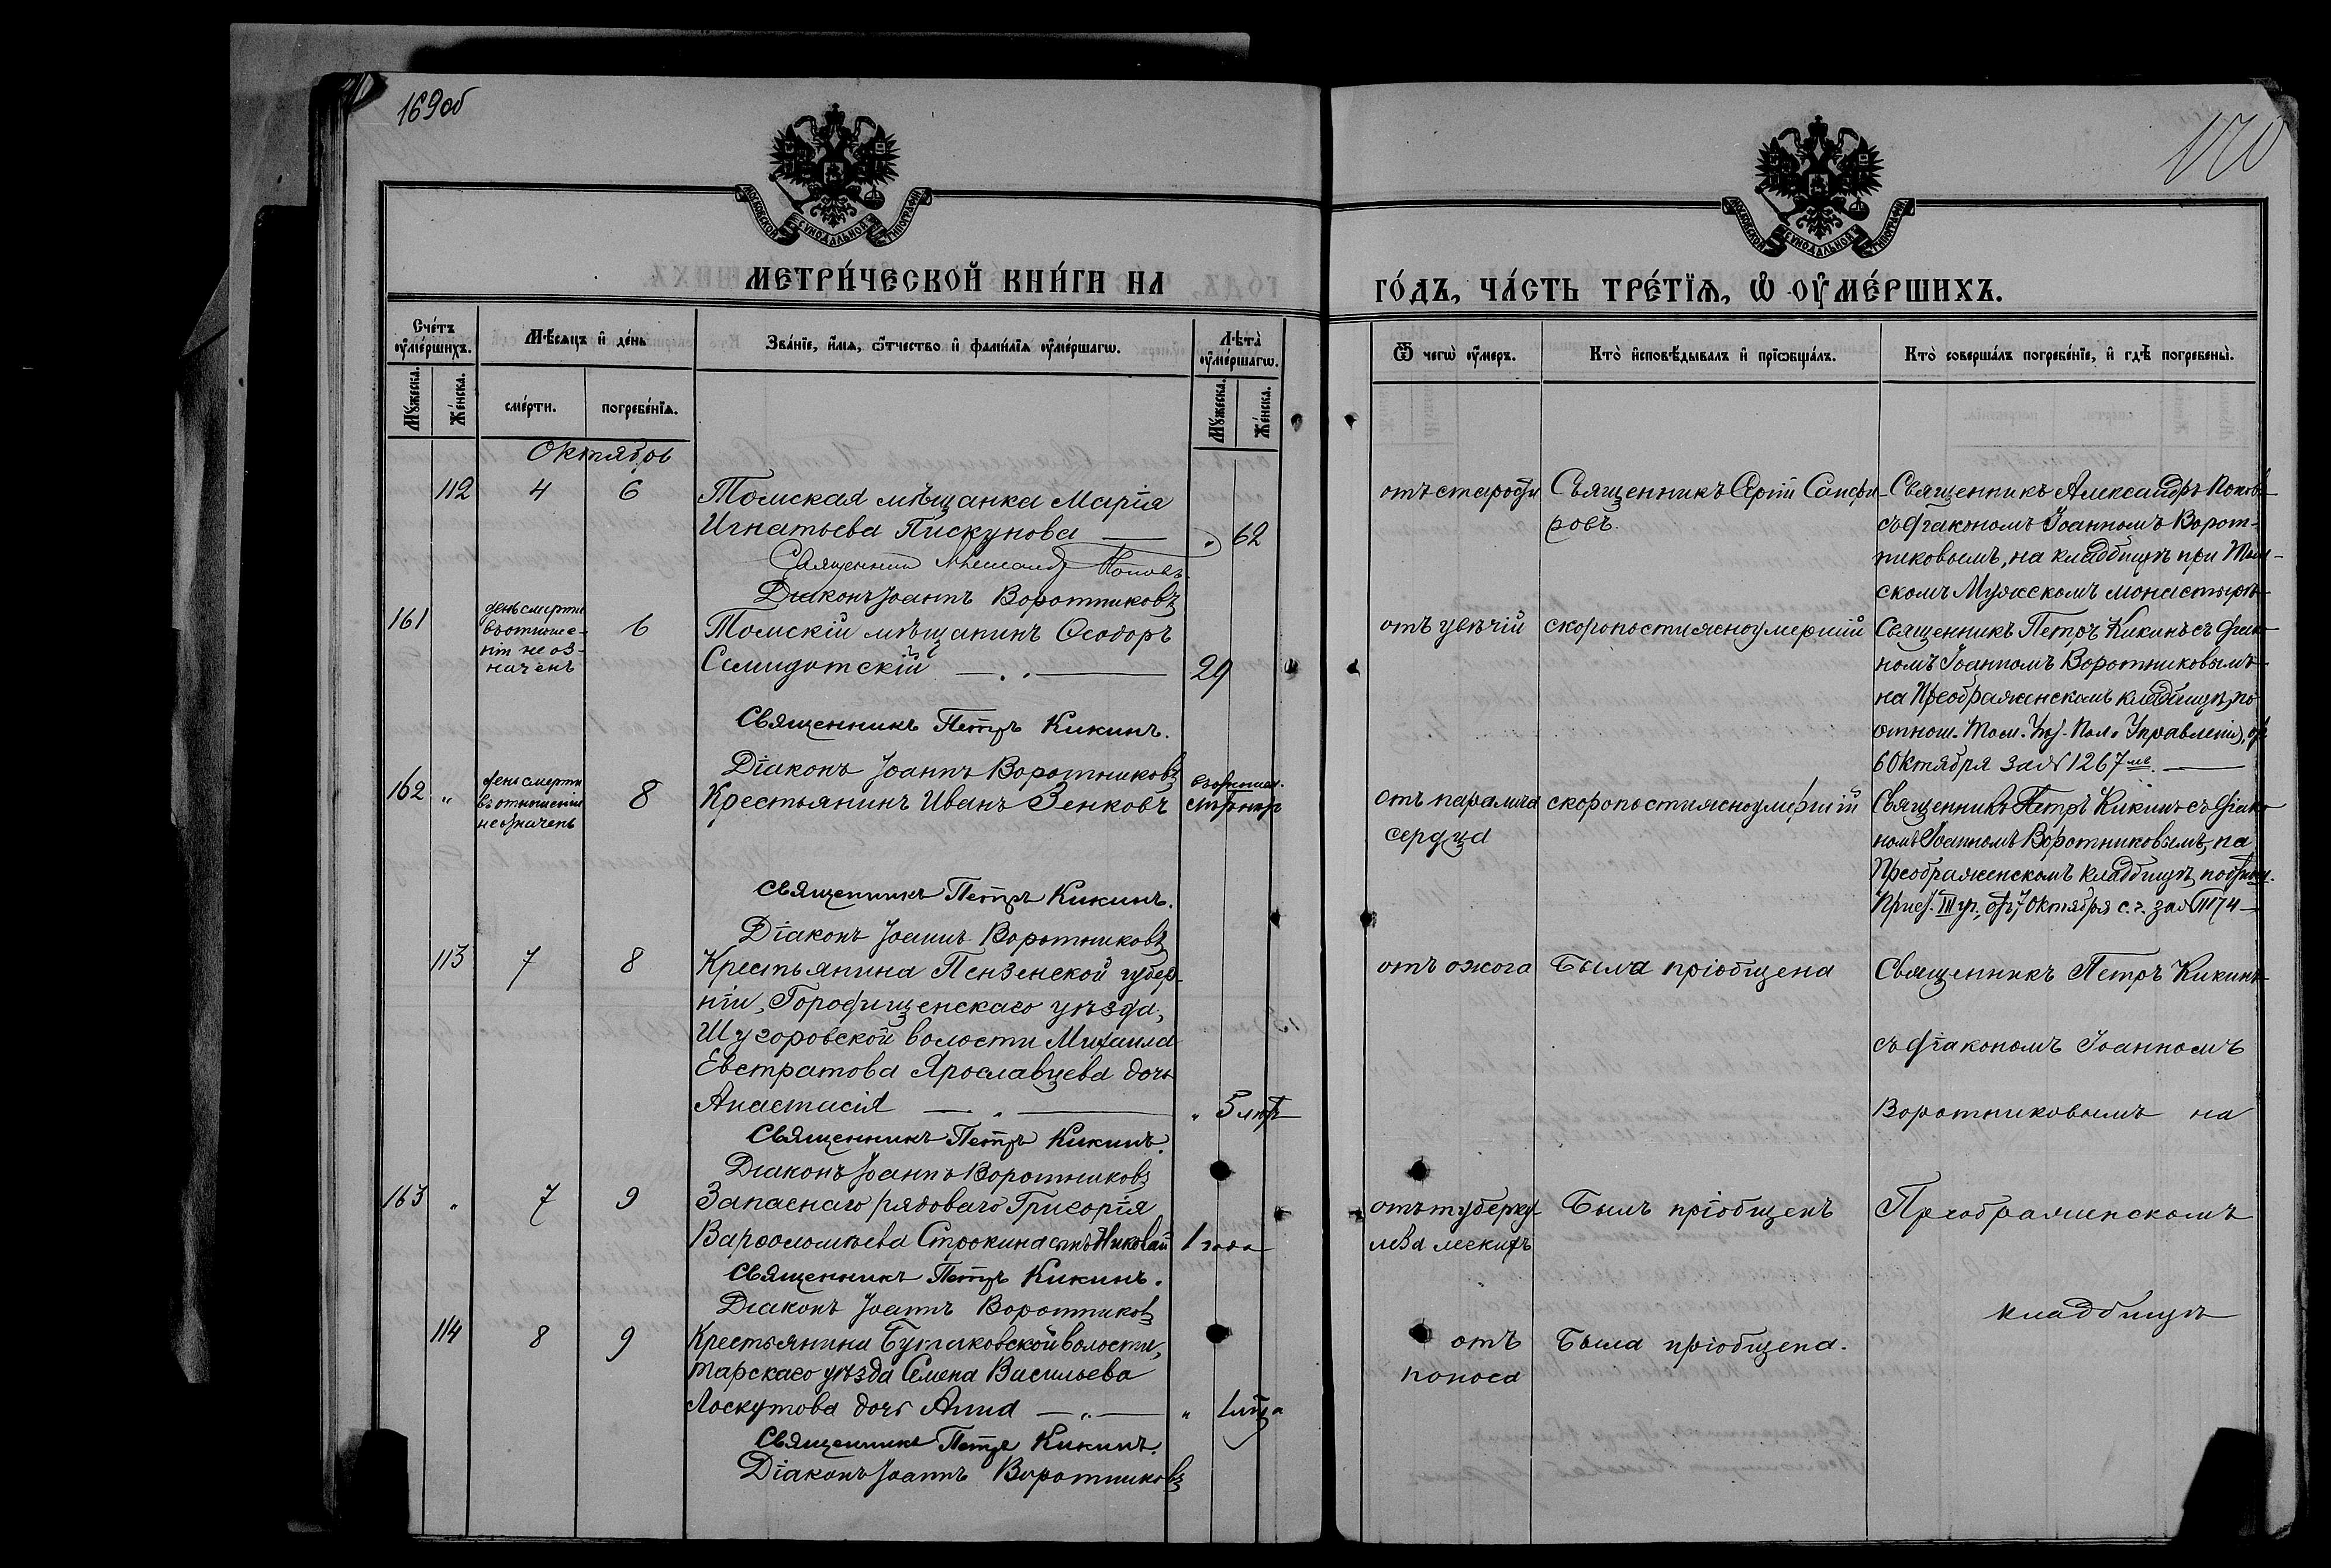 169об
170
МОСКОВСКОЙ СѴНОДАЛЬНОЙ ТИПОГРАФІИ
МОСКОВСКОЙ СѴНОДАЛЬНОЙ ТИПОГРАФІИ
МЕТРИ́ЧЕСКОЙ КНИ́ГИ НА
ГО́ДЪ, ЧА́СТЬ ТРЕ́ТЇѦ, Ѡ҆ ОУ҆МЕ́РШИХЪ.
Сче́тъ оу҆ме́ршихъ.
Мѣ́сѧцъ и҆ де́нь
Зва́нїе, и҆́мѧ, ѻ҆́тчество и҆ фами́лїѧ оу҆ме́ршагѡ.
Лѣ́та оу҆ме́ршагѡ.
Ѿ чегѡ̀ оу҆́меръ.
Кто̀ и҆сповѣ́дывалъ и҆ прїѡбща́лъ.
Кто̀ соверша́лъ погребе́нїе, и҆ гдѣ̀ погребены̀.
Мꙋ́жеска.
Же́нска.
сме́рти.
погребе́нїѧ.
Мꙋ́жеска.
Же́нска.
Октябрь
112 4 6 Томская мѣщанка Марія
Игнатьева Пискунова — „ 62
Священник Александр Поповъ
Діаконъ Іоаннъ Воротниковъ
отъ старости
Священникъ Сергій Сапфи-
ровъ.
Священникъ Александръ Поповъ
съ діакономъ Іоанномъ Ворот-
никовымъ, на кладбищѣ при Том-
скомъ Мужскомъ монастырѣ
161 день смерти
въ отноше-
ніи не оз-
наченъ
6 Томскій мѣщанинъ Ѳеодоръ
29
Священникъ Петръ Кикинъ.
Діаконъ Іоаннъ Воротниковъ
отъ увѣчій
скоропостижно умершій
Священникъ Петръ Кикинъ съ діако-
номъ Іоанномъ Воротниковымъ
на Преображенскомъ кладбищѣ, по
отнош. Том. Пол. Управленія, отъ
6 Октября за № 1267
162 „ день смерти
въ отношеніи
не означенъ
8 Крестьянинъ Иванъ Зенковъ
Священникъ Петръ Кикинъ.
Діаконъ Іоаннъ Воротниковъ
отъ паралича
сердца
скоропостижно умершій
Священникъ Петръ Кикинъ съ діако-
номъ Іоанномъ Воротниковымъ, на
Преображенскомъ кладбищѣ,
III уч., отъ 7 Октября с. г. за № 11174
113 7 8 Крестьянина Пензенской губер-
ніи, Городищенскаго уѣзда,
Шугоровской волости Михаила
Евстратова Ярославцева дочь
Анастасія — „ 5 лѣтъ
Священникъ Петръ Кикинъ.
Діаконъ Іоаннъ Воротниковъ
отъ ожога
Была пріобщена
Священникъ Петръ Кикинъ
съ діакономъ Іоанномъ
Воротниковымъ на
163 „ 7 9 Запаснаго рядоваго Григорія
Варѳоломѣева Строкина сынъ Николай 1 года
Священникъ Петръ Кикинъ.
Діаконъ Іоаннъ Воротниковъ
отъ туберку-
леза легкихъ
Былъ пріобщенъ
Преображенскомъ
кладбищѣ
114 8 9 Крестьянина Бутаковской волости,
Тарскаго уѣзда Семена Васильева
Лоскутова дочь Анна — „
Священникъ Петръ Кикинъ.
Діаконъ Іоаннъ Воротниковъ
отъ
поноса
Была пріобщена.